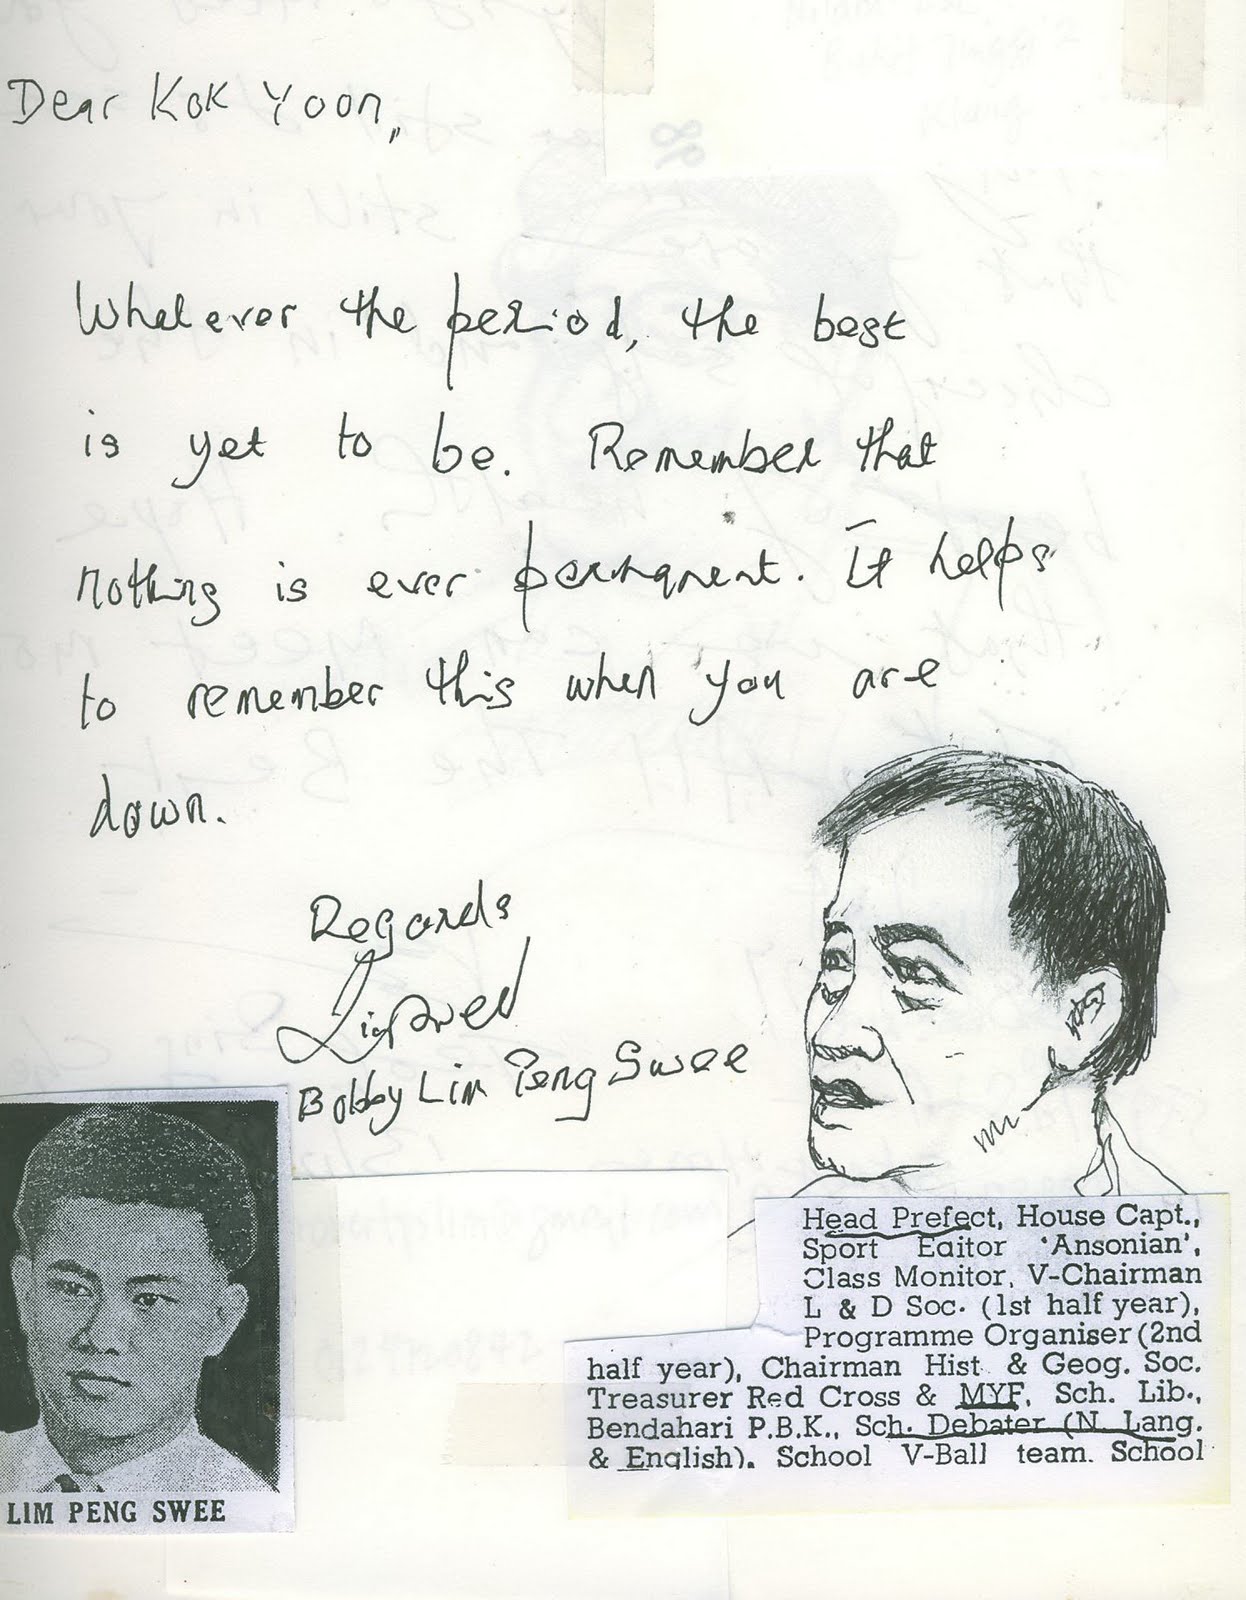 Dear Kok Yoon,
Whatever the period, the best
is yet to be. Remember that
nothing is ever permanent. It helps
to remember this when you are
down.
Regards
Bobby Lim Peng Swee
LIM PENG SWEE
Head Prefect, House Capt.,
Sport Editor 'Ansonian',
Class Monitor, V-Chairman
L & D Soc. (1st half year),
Programme Organiser (2nd
half year), Chairman Hist & Geog. Soc.
Treasurer Red Cross & MYF, Sch. Lib.,
Bendahari P.B.K., Sch. Debater (N. Lang.
& English). School V-Ball team. School